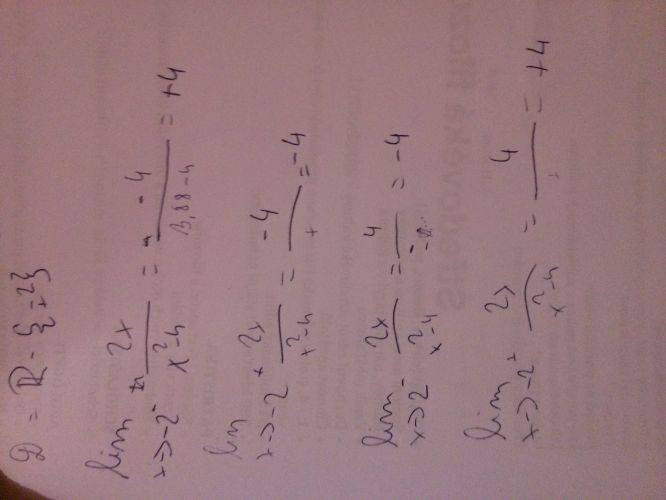 D = R - {±2}
lim x→-2⁻ 2x/x²-4 = -4/3,88-4 = +4
lim x→-2⁺ 2x/x²-4 = -4/+ = -4
lim x→2⁻ 2x/x²-4 = 4/- = -4
lim x→-2⁺ 2x/x²-4 = 4/+ = +4